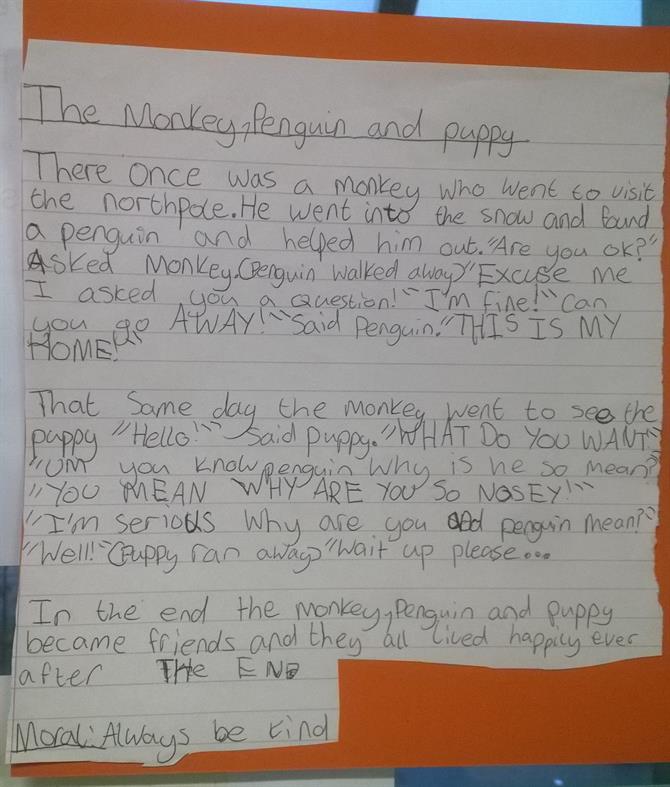 The Monkey, Penguin and puppy
There once was a monkey who went to visit
the northpole. He went into the snow and found
a penguin and helped him out. "Are you ok?"
Asked Monkey. (Penguin walked away) "Excuse me
I asked you a question!" "I'm fine!" "Can
you go AWAY!" "Said Penguin." THIS IS MY
HOME!"
That same day the monkey went to see the
puppy "Hello!" Said puppy. "WHAT DO YOU WANT"
"UM you know penguin why is he so mean?"
"YOU MEAN WHY ARE YOU SO NOSEY!"
"I'm serious why are you and penguin mean?"
"Well!" (Puppy ran away) "Wait up please...
In the end the monkey, Penguin and puppy
became friends and they all lived happily ever
after THE END
Moral: Always be kind